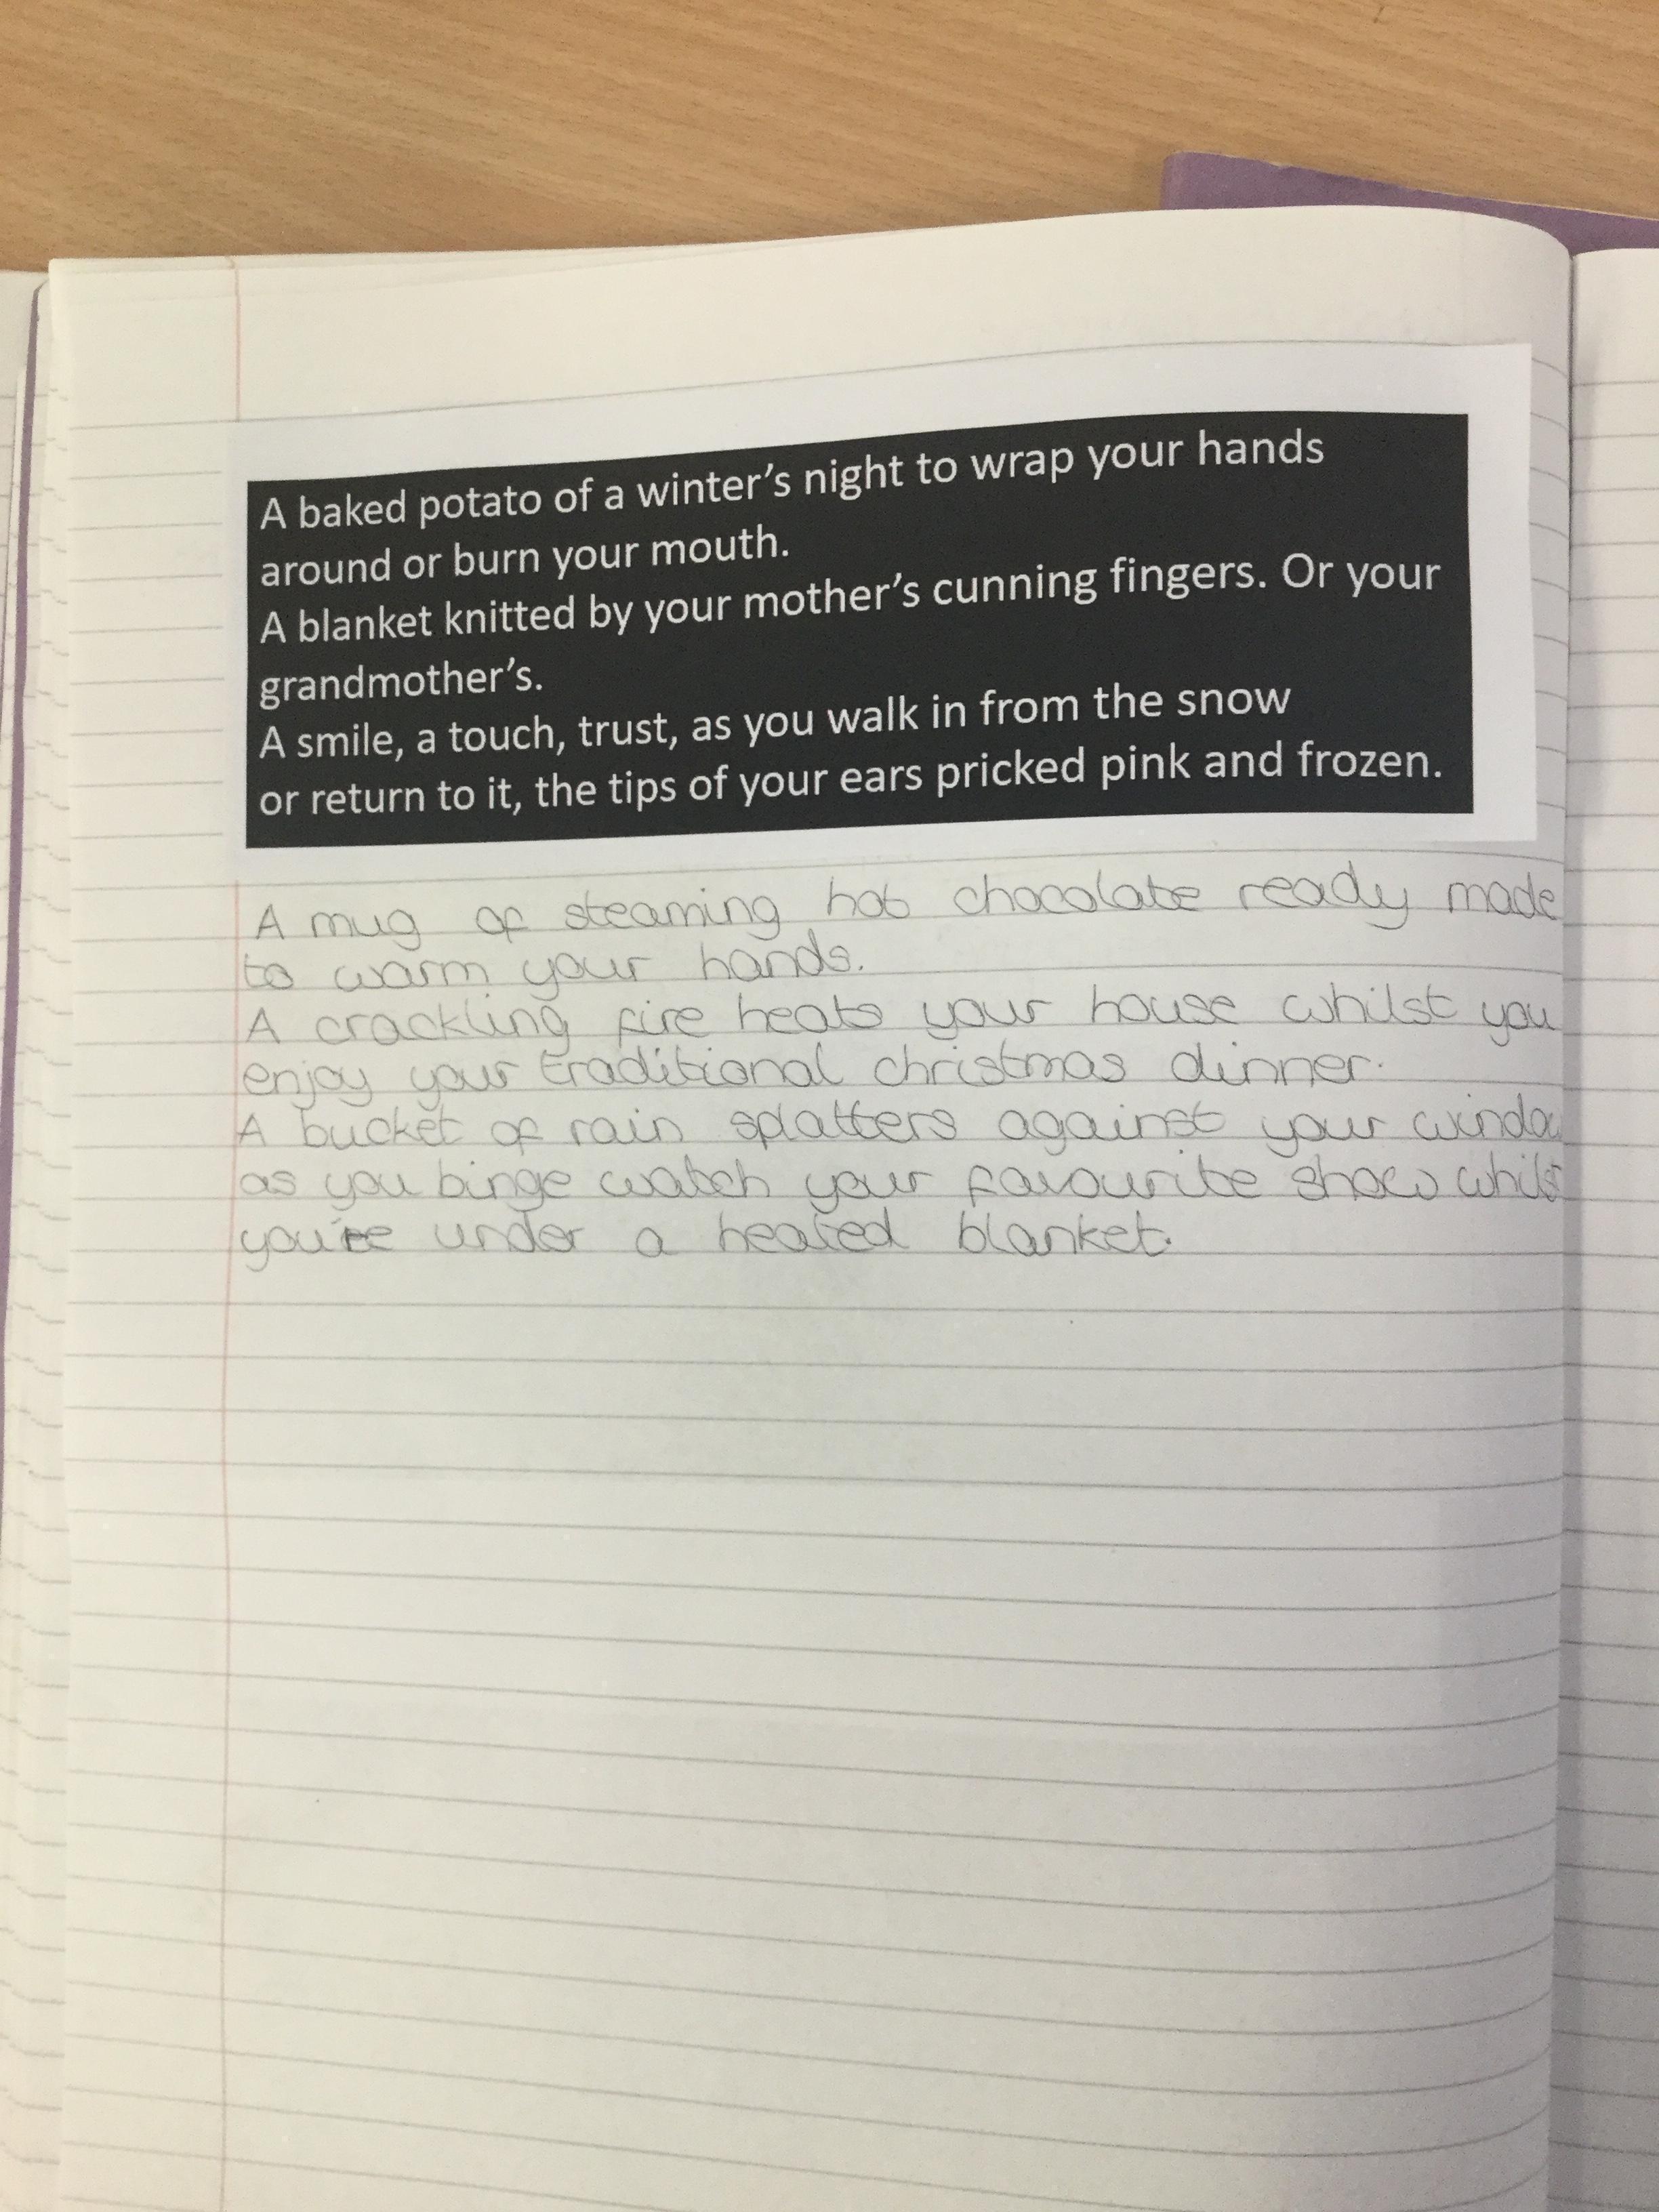 A baked potato of a winter's night to wrap your hands
around or burn your mouth.
A blanket knitted by your mother's cunning fingers. Or your
grandmother's.
A smile, a touch, trust, as you walk in from the snow
or return to it, the tips of your ears pricked pink and frozen.
A mug of steaming hot chocolate ready made
to warm your hands.
A crackling fire heats your house whilst you
enjoy your traditional christmas dinner.
A bucket of rain splatters against your window
as you binge watch your favourite show whilst
you're under a heated blanket.